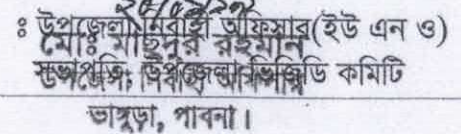 ঃ উপজেলা নির্বাহী অফিসার(ইউ এন ও)
মোঃ মাহিদুর রহমান
সভাপতি, উপজেলা ভিজিডি কমিটি
উপজেলা নির্বাহী অফিসার
ভাঙ্গুড়া, পাবনা।